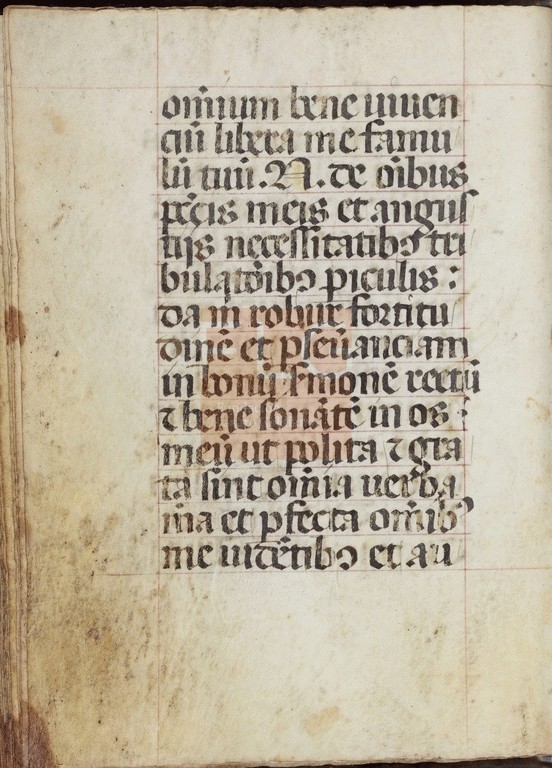 om̄ium bene uiuen
ciū libera me famu
lū tuū. N. de oı̄bus
pc̄cis meis et angus
tijs necessitatibꝯ tri
bulatōibꝯ piculis :
da m robur fortitu
dinē et pseūanciam
in bonū sm̄onē rectū
⁊ bene sonātē in os
meū ut polita ⁊ gra
ta sint om̄ia uerba
m̄a et pfecta om̄ibꝯ
me uidētibꝯ et au